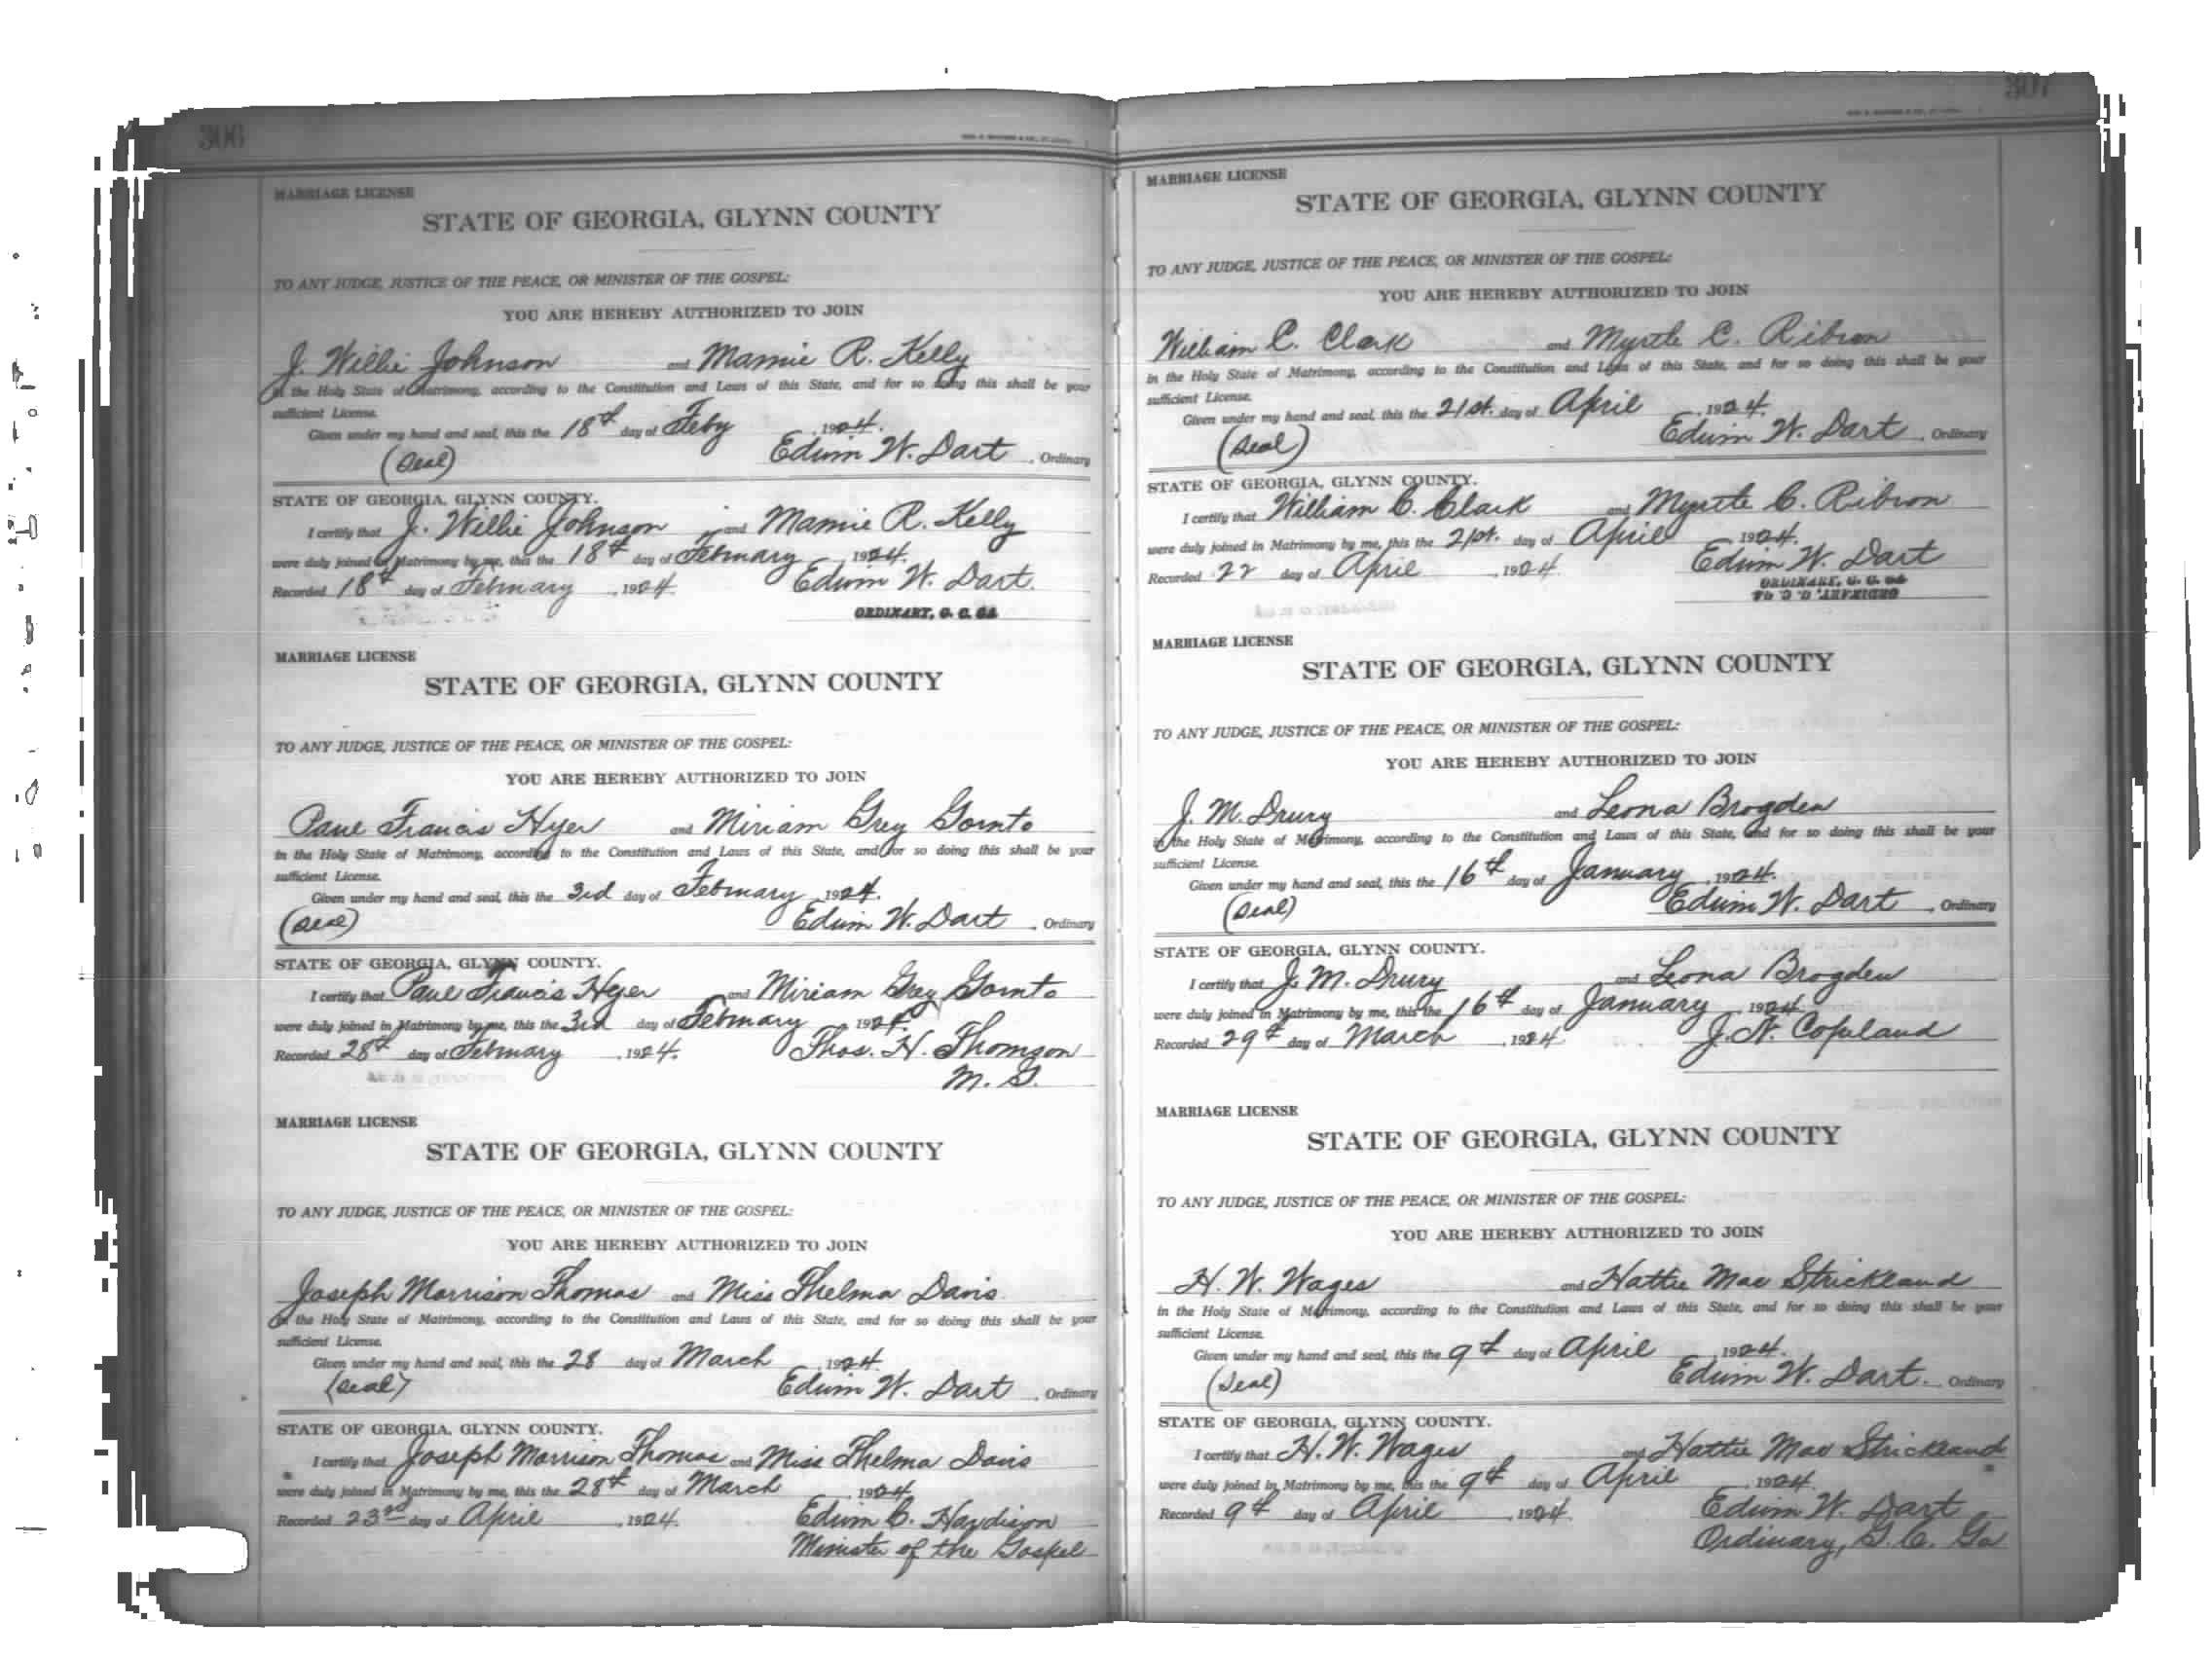 306
MARRIAGE LICENSE
STATE OF GEORGIA, GLYNN COUNTY
TO ANY JUDGE, JUSTICE OF THE PEACE, OR MINISTER OF THE GOSPEL:
YOU ARE HEREBY AUTHORIZED TO JOIN
J. Willie Johnson and Mamie R. Kelly
in the Holy State of Matrimony, according to the Constitution and Laws of this State, and for so doing this shall be your
sufficient License.
Given under my hand and seal, this the 18th day of Feby 1924.
(Seal) Edwin W. Dart, Ordinary
STATE OF GEORGIA, GLYNN COUNTY.
I certify that J. Willie Johnson and Mamie R. Kelly
were duly joined in Matrimony by me, this the 18th day of February 1924.
Recorded 18th day of February, 1924. Edwin W. Dart.
ORDINARY, G. C. GA
MARRIAGE LICENSE
STATE OF GEORGIA, GLYNN COUNTY
TO ANY JUDGE, JUSTICE OF THE PEACE, OR MINISTER OF THE GOSPEL:
YOU ARE HEREBY AUTHORIZED TO JOIN
Paul Francis Hyer and Miriam Grey Gornto
in the Holy State of Matrimony, according to the Constitution and Laws of this State, and for so doing this shall be your
sufficient License.
Given under my hand and seal, this the 3rd day of February, 1924.
(Seal) Edwin W. Dart, Ordinary
STATE OF GEORGIA, GLYNN COUNTY.
I certify that Paul Francis Hyer and Miriam Grey Gornto
were duly joined in Matrimony by me, this the 3rd day of February, 1924.
Recorded 28th day of February, 1924. Thos. H. Thomson
M. G.
MARRIAGE LICENSE
STATE OF GEORGIA, GLYNN COUNTY
TO ANY JUDGE, JUSTICE OF THE PEACE, OR MINISTER OF THE GOSPEL:
YOU ARE HEREBY AUTHORIZED TO JOIN
Joseph Morrison Thomas and Miss Thelma Davis
in the Holy State of Matrimony, according to the Constitution and Laws of this State, and for so doing this shall be your
sufficient License.
Given under my hand and seal, this the 28 day of March, 1924.
(Seal) Edwin W. Dart, Ordinary
STATE OF GEORGIA, GLYNN COUNTY.
I certify that Joseph Morrison Thomas and Miss Thelma Davis
were duly joined in Matrimony by me, this the 28th day of March, 1924.
Recorded 23rd day of April, 1924. Edwin C. Hardison
Minister of the Gospel
307
MARRIAGE LICENSE
STATE OF GEORGIA, GLYNN COUNTY
TO ANY JUDGE, JUSTICE OF THE PEACE, OR MINISTER OF THE GOSPEL:
YOU ARE HEREBY AUTHORIZED TO JOIN
William C. Clark and Myrtle C. Ribron
in the Holy State of Matrimony, according to the Constitution and Laws of this State, and for so doing this shall be your
sufficient License.
Given under my hand and seal, this the 21st. day of April, 1924.
(Seal) Edwin W. Dart, Ordinary
STATE OF GEORGIA, GLYNN COUNTY.
I certify that William C. Clark and Myrtle C. Ribron
were duly joined in Matrimony by me, this the 21st. day of April, 1924.
Recorded 22 day of April, 1924. Edwin W. Dart
ORDINARY, G. C. GA
ORDINARY, G. C. GA
MARRIAGE LICENSE
STATE OF GEORGIA, GLYNN COUNTY
TO ANY JUDGE, JUSTICE OF THE PEACE, OR MINISTER OF THE GOSPEL:
YOU ARE HEREBY AUTHORIZED TO JOIN
J. M. Drury and Leona Brogden
in the Holy State of Matrimony, according to the Constitution and Laws of this State, and for so doing this shall be your
sufficient License.
Given under my hand and seal, this the 16th day of January, 1924.
(Seal) Edwin W. Dart, Ordinary
STATE OF GEORGIA, GLYNN COUNTY.
I certify that J. M. Drury and Leona Brogden
were duly joined in Matrimony by me, this the 16th day of January, 1924.
Recorded 29th day of March, 1924. J. N. Copeland
MARRIAGE LICENSE
STATE OF GEORGIA, GLYNN COUNTY
TO ANY JUDGE, JUSTICE OF THE PEACE, OR MINISTER OF THE GOSPEL:
YOU ARE HEREBY AUTHORIZED TO JOIN
H. W. Wages and Hattie Mae Strickland
in the Holy State of Matrimony, according to the Constitution and Laws of this State, and for so doing this shall be your
sufficient License.
Given under my hand and seal, this the 9th day of April, 1924.
(Seal) Edwin W. Dart. Ordinary
STATE OF GEORGIA, GLYNN COUNTY.
I certify that H. W. Wages and Hattie Mae Strickland
were duly joined in Matrimony by me, this the 9th day of April, 1924.
Recorded 9th day of April, 1924. Edwin W. Dart
Ordinary, G. C. Ga